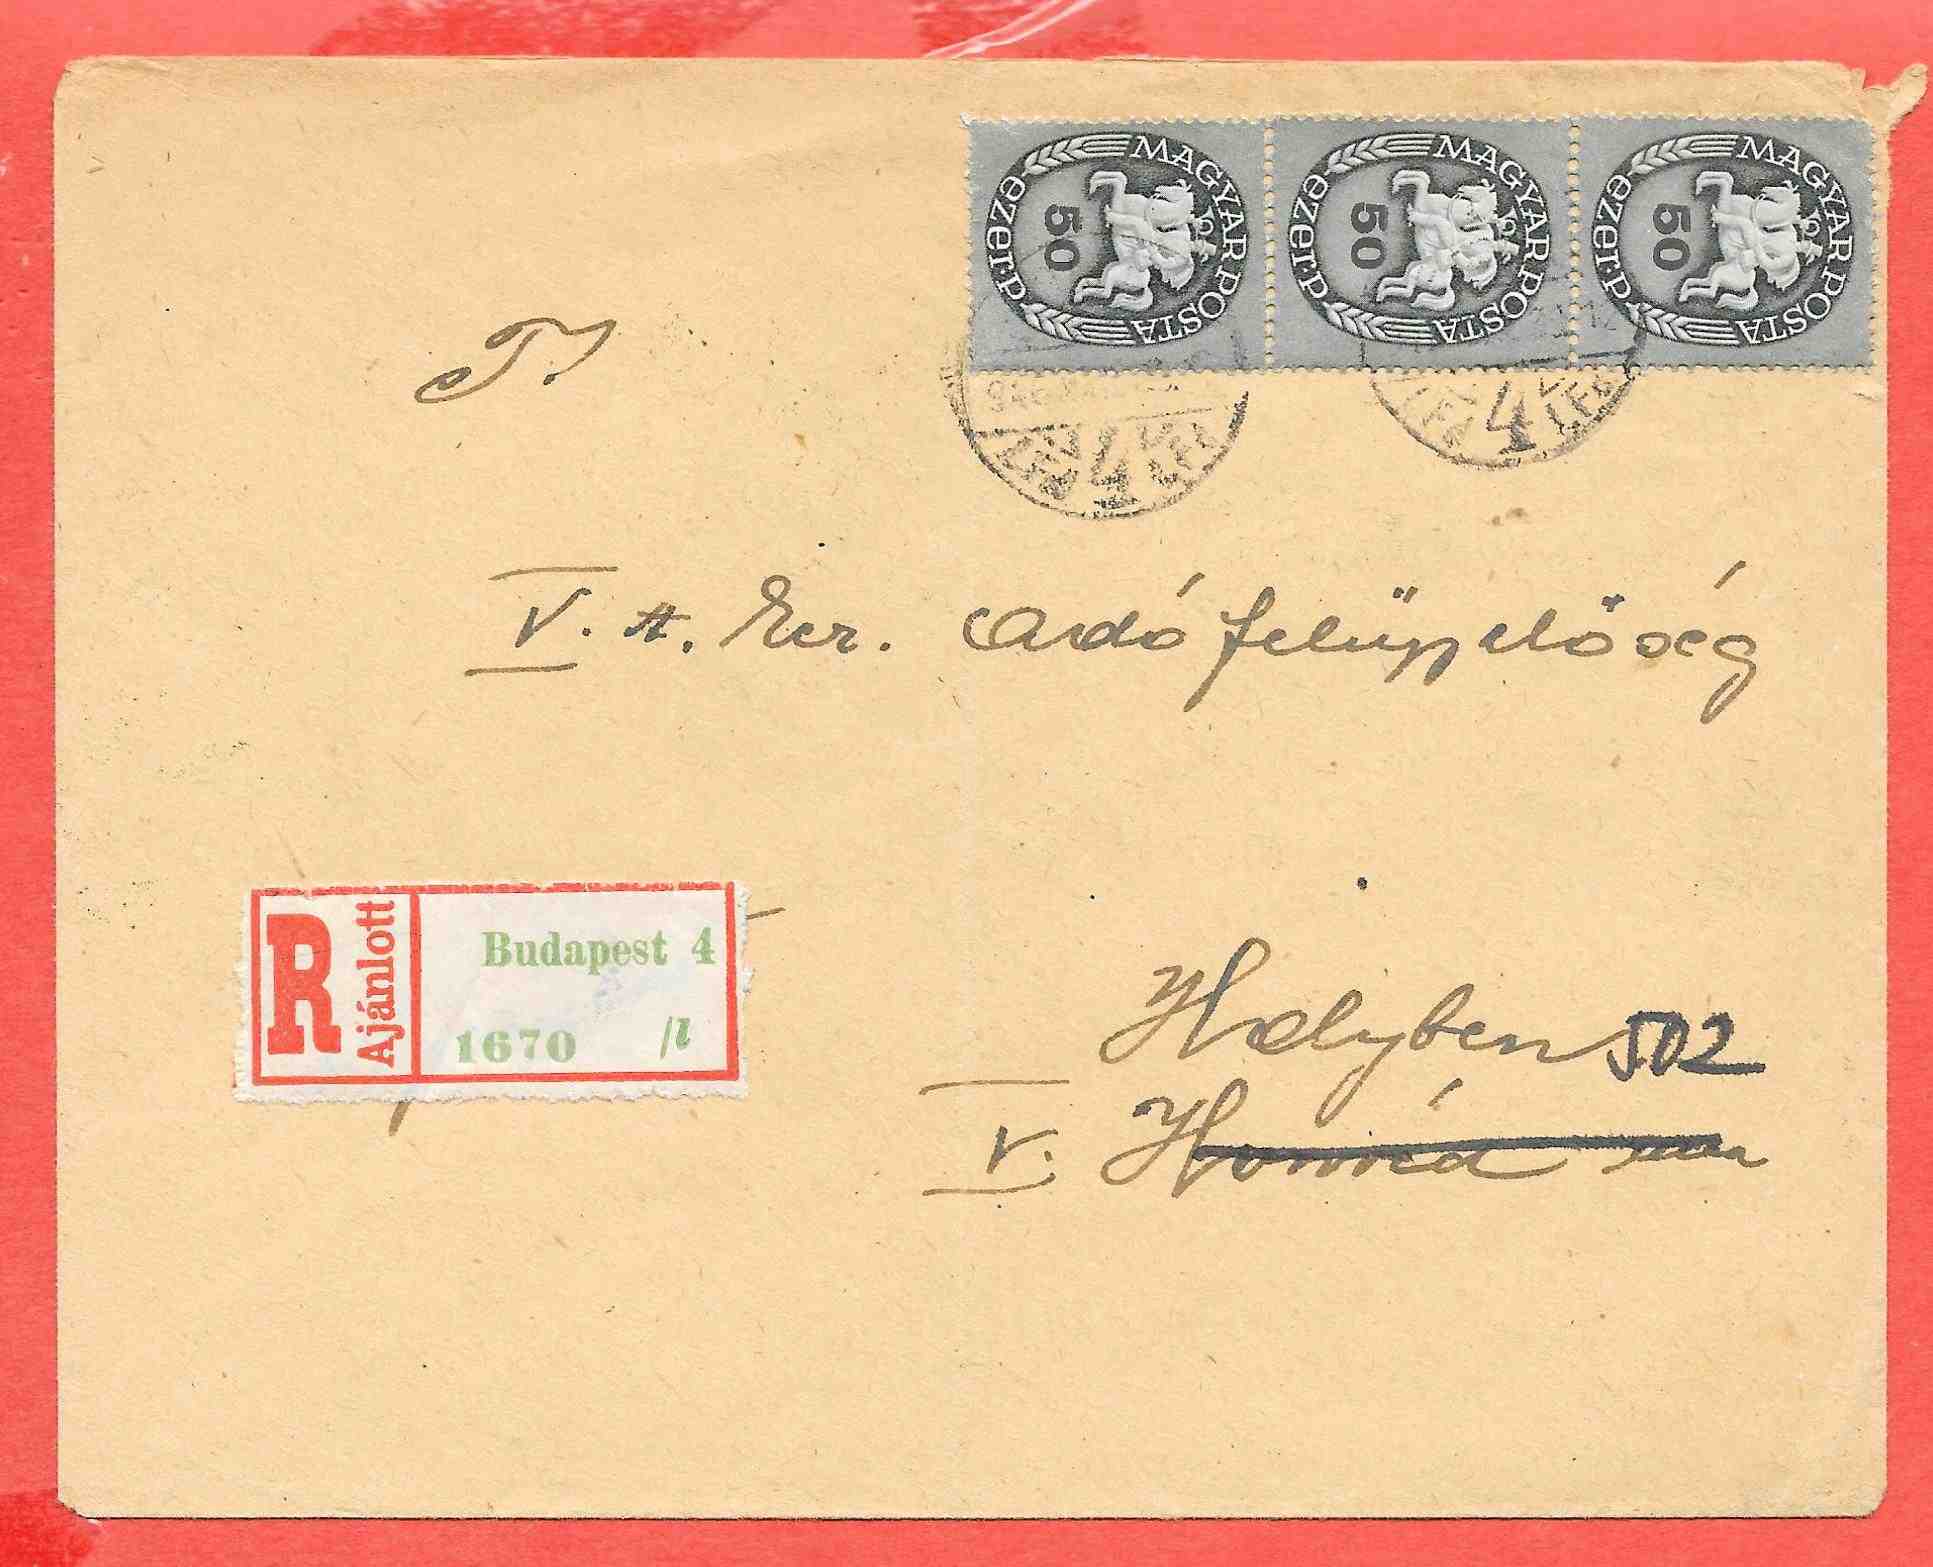 MAGYAR POSTA 50 ezer.p
MAGYAR POSTA 50 ezer.p
MAGYAR POSTA 50 ezer.p
4
4
T.
V. ker. Adófelügyelőség
R Ajánlott
Budapest 4
1670 /l
Helyben 502
V. Honvéd utca